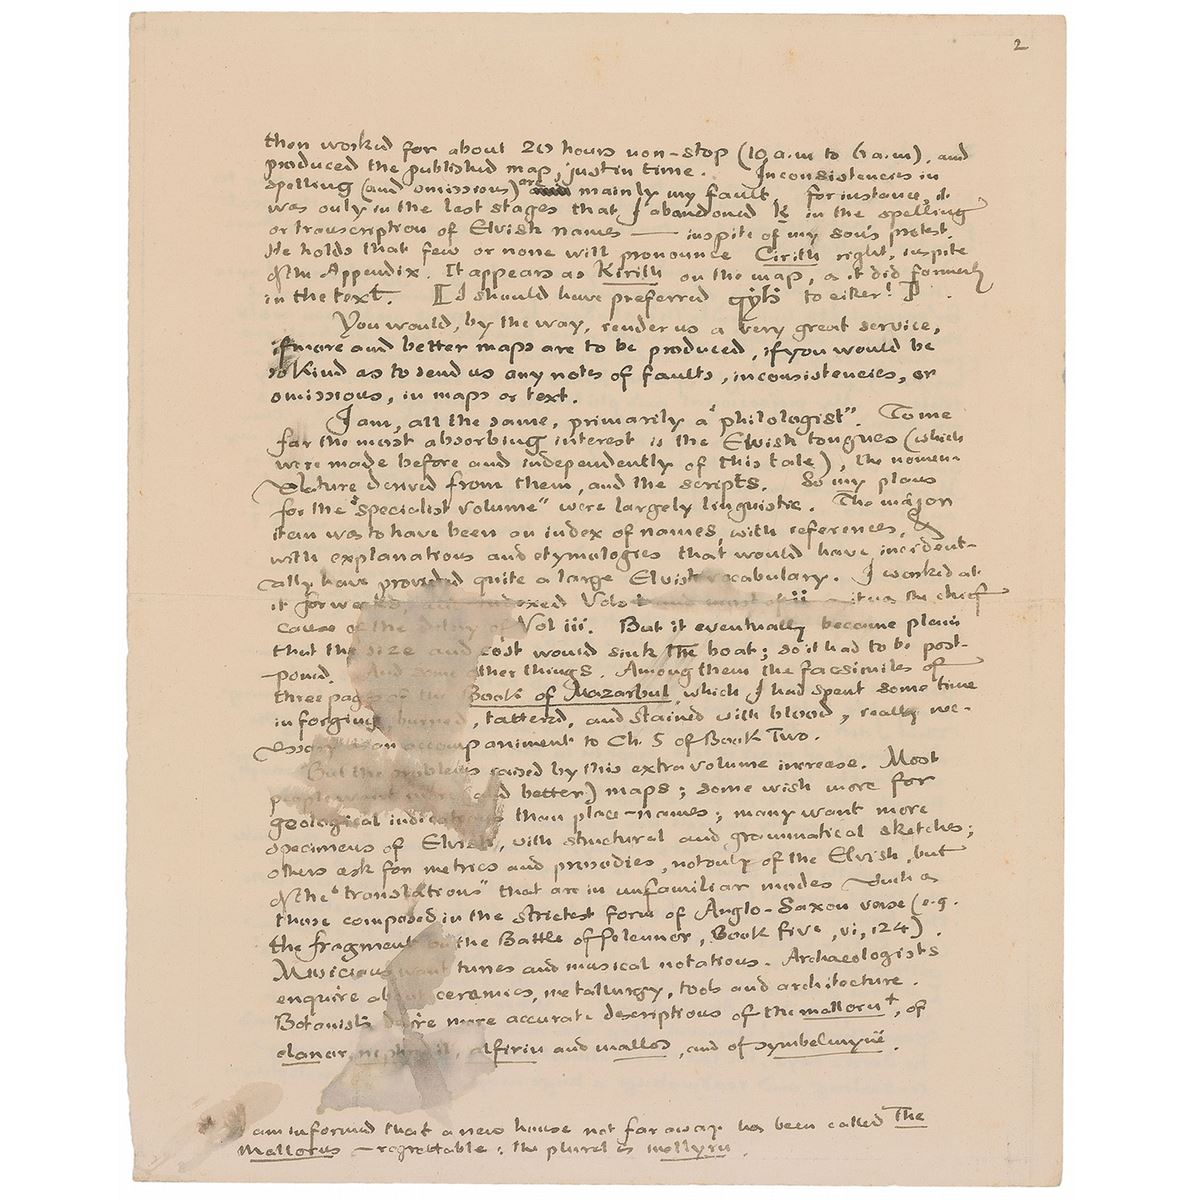 2
then worked for about 20 hours non-stop (10 a.m to 6 a.m), and
produced the published map, just in time. Inconsistencies in
spelling (and omissions) are mainly my fault. for instance, it
was only in the last stages that I abandoned k in the spelling
or transcription of Elvish names — inspite of my son's protest.
He holds that few or none will pronounce Cirith right, inspite
of the Appendix. It appears as Kirith on the map, as it did formerly
in the text. [I should have preferred to eiker!]
You would, by the way, render us a very great service,
if more and better maps are to be produced, if you would be
so kind as to send us any notes of faults, inconsistencies, or
omissions, in maps or text.
I am, all the same, primarily a "philologist". To me
far the most absorbing interest is the Elvish tongues (which
were made before and independently of this tale), the nomen-
clature derived from them, and the scripts. So my plans
for the "specialist volume" were largely linguistic. The major
item was to have been an index of names, with references, &
with explanations and etymologies that would have incident-
ally have provided quite a large Elvish vocabulary. I worked at
it for weeks, and indexed Vols I and most of ii – it was the chief
cause of the delay of Vol iii. But it eventually became plain
that the size and cost would sink the boat; so it had to be post-
-poned. And some other things. Among them the facsimiles of
three pages of the Book of Mazarbul, which I had spent some time
in forging, burned, tattered, and stained with blood, really ne-
cessary as an accompaniment to Ch. 5 of Book Two.
But the problems raised by this extra volume increase. Most
people want more (and better) maps; some wish more for
geological indications than place-names; many want more
specimens of Elvish, with structural and grammatical sketches;
others ask for metrics and prosodies, not only of the Elvish, but
of the "translations" that are in unfamiliar modes such as
those composed in the strictest form of Anglo-Saxon verse (e.g.
the fragment on the Battle of Pelennor, Book five, vi, 124).
Musicians want tunes and musical notations. Archaeologists
enquire about ceramics, metallurgy, tools and architecture.
Botanists desire more accurate descriptions of the mallorn+, of
elanor, niphredil, alfirin and mallos, and of symbelmynë.
I am informed that a new house not far away has been called The
Mallorns – regrettable: the plural is mellyrn.